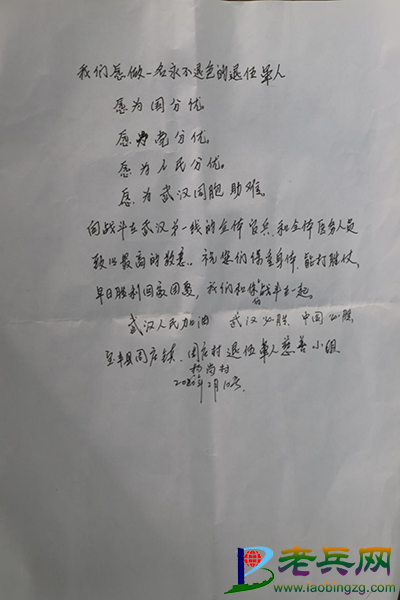 我们愿做一名永不退色的退伍军人
愿为国分忧
愿为党分忧。
愿为人民分忧。
愿为武汉同胞助难。
向战斗在武汉第一线的全体官兵、和全体医务人员
致以最高的敬意。祝您们保重身体,能打胜仗,
早日胜利回家团聚,我们和您战斗在一起。
武汉人民加油 武汉必胜、中国必胜。
周店镇、周店村退伍军人慈善小组
2020年2月10号
老兵网
www.laobingzg.com